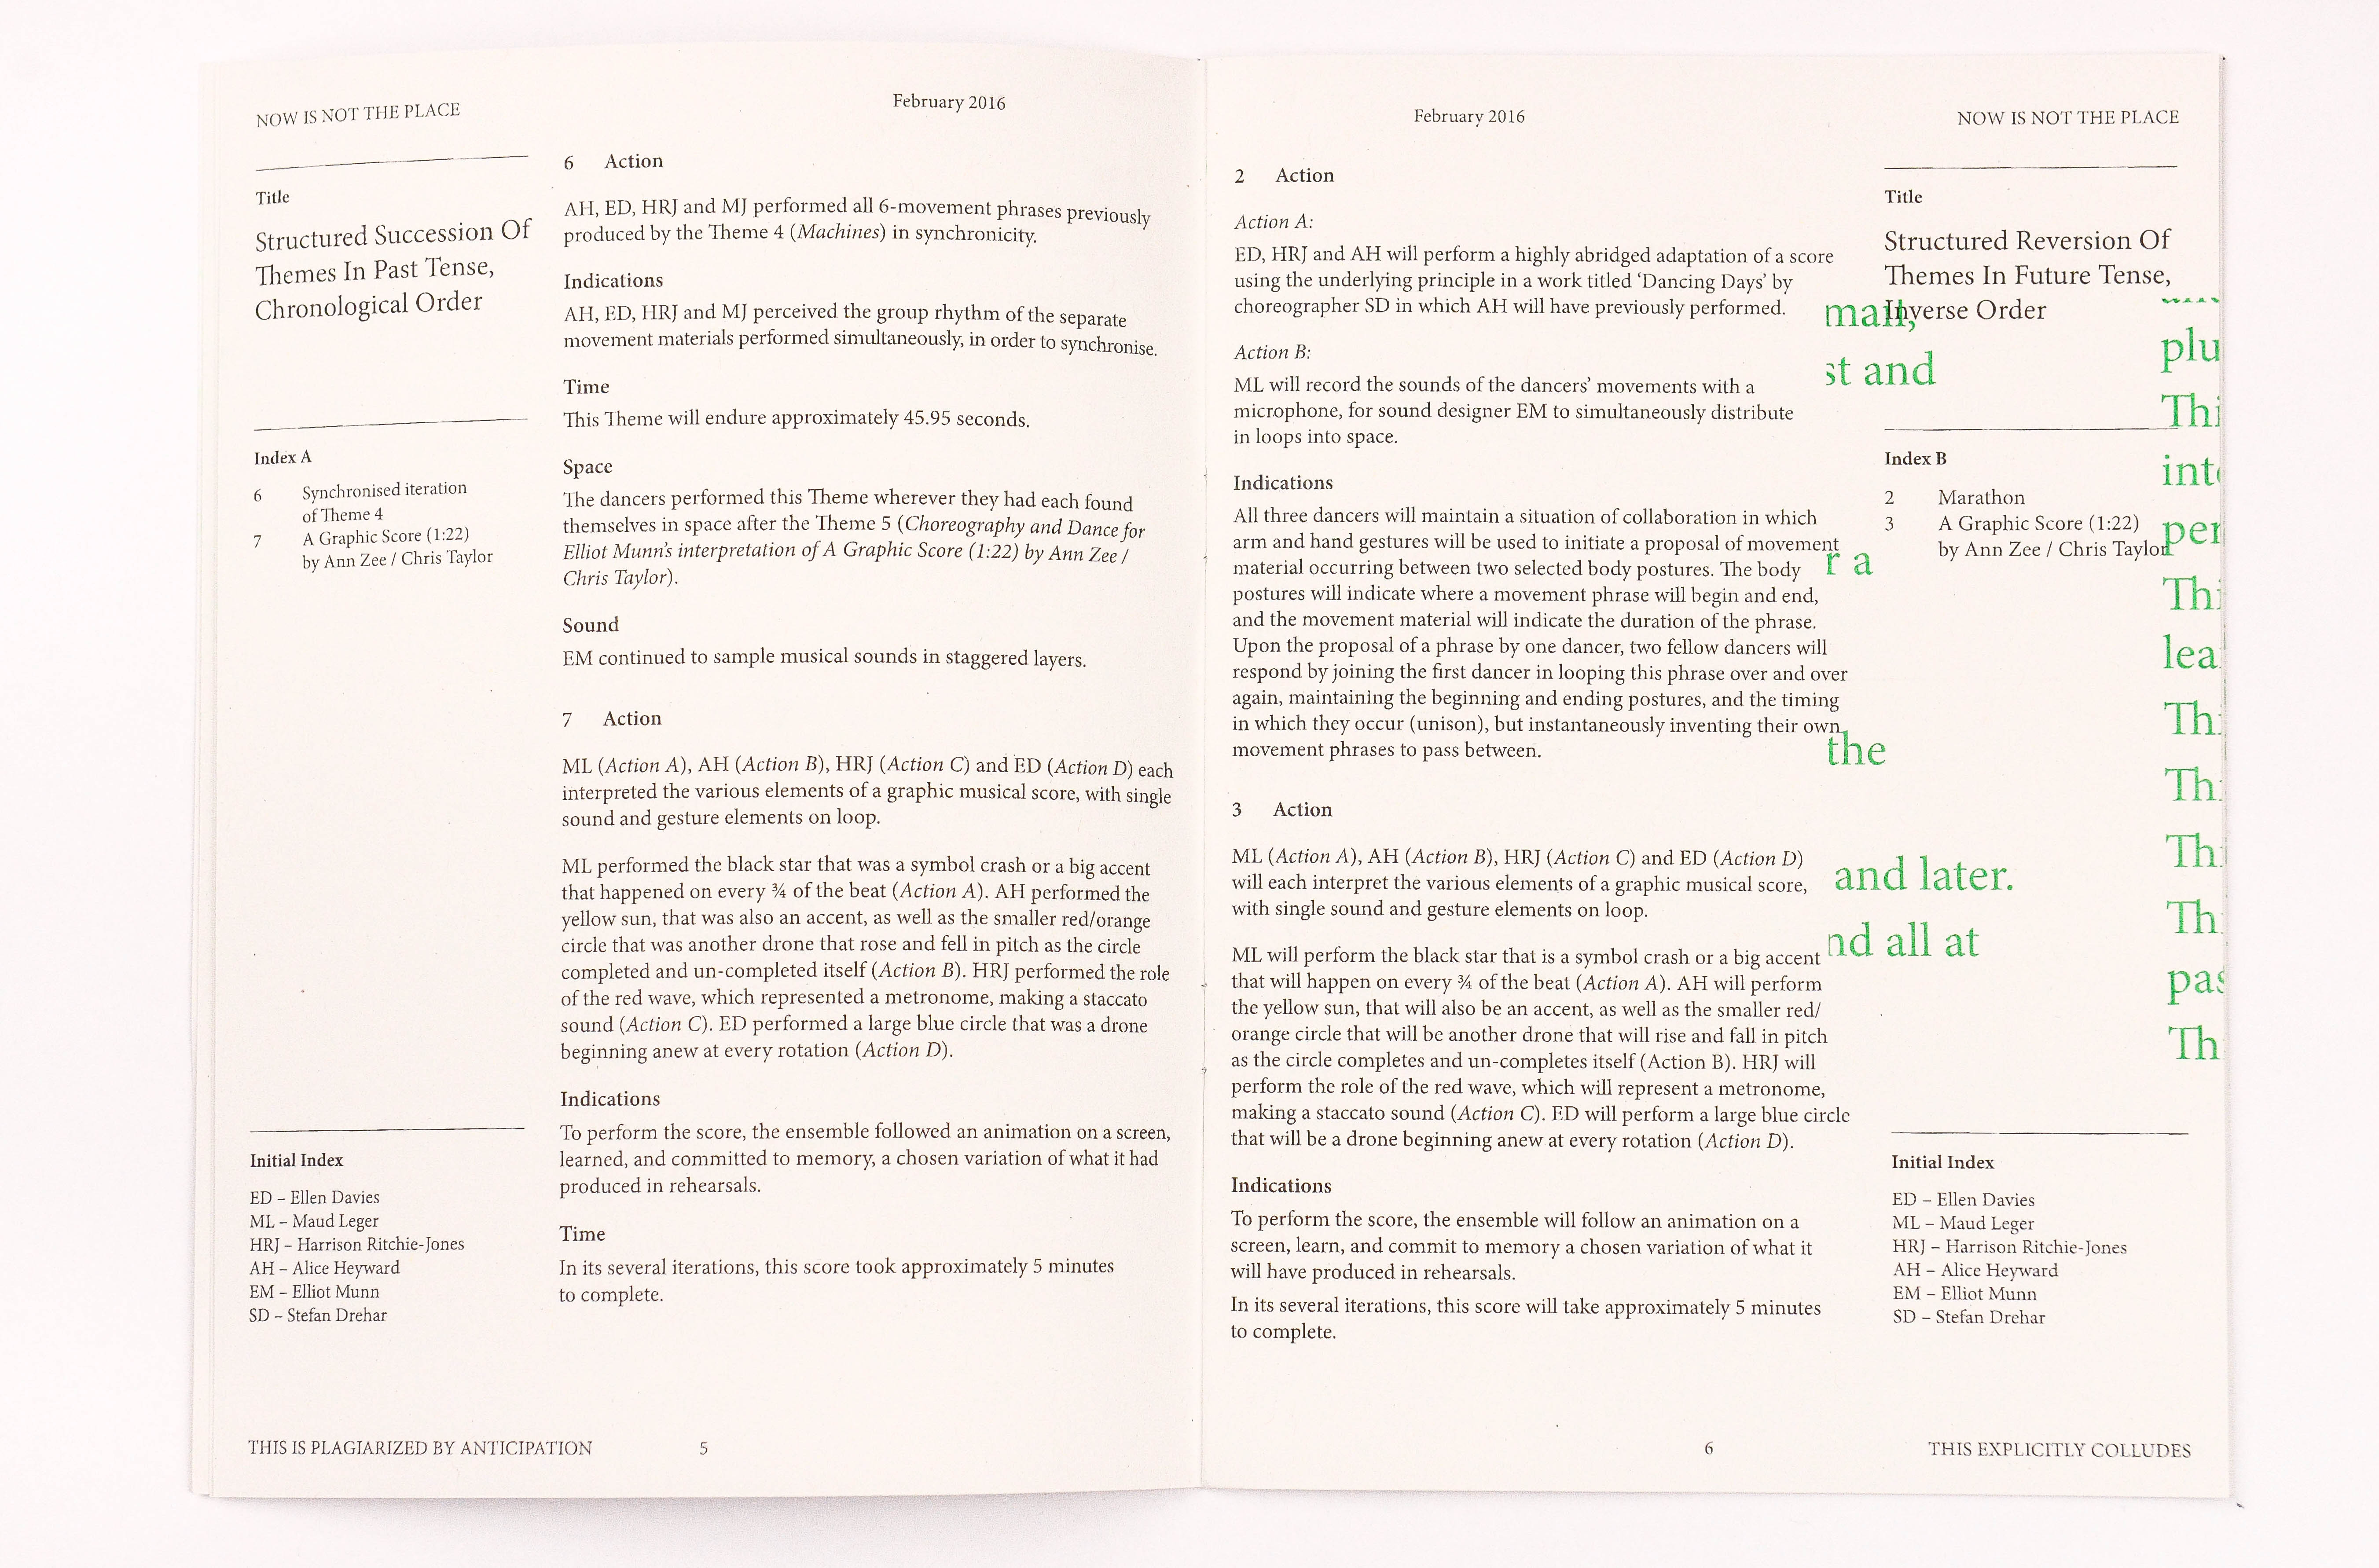 NOW IS NOT THE PLACE
February 2016
Title
Structured Succession Of
Themes In Past Tense,
Chronological Order
Index A
6 Synchronised iteration
of Theme 4
7 A Graphic Score (1:22)
by Ann Zee / Chris Taylor
Initial Index
ED – Ellen Davies
ML – Maud Leger
HRJ – Harrison Ritchie-Jones
AH – Alice Heyward
EM – Elliot Munn
SD – Stefan Drehar
6 Action
AH, ED, HRJ and MJ performed all 6-movement phrases previously
produced by the Theme 4 (Machines) in synchronicity.
Indications
AH, ED, HRJ and MJ perceived the group rhythm of the separate
movement materials performed simultaneously, in order to synchronise.
Time
This Theme will endure approximately 45.95 seconds.
Space
The dancers performed this Theme wherever they had each found
themselves in space after the Theme 5 (Choreography and Dance for
Elliot Munn's interpretation of A Graphic Score (1:22) by Ann Zee /
Chris Taylor).
Sound
EM continued to sample musical sounds in staggered layers.
7 Action
ML (Action A), AH (Action B), HRJ (Action C) and ED (Action D) each
interpreted the various elements of a graphic musical score, with single
sound and gesture elements on loop.
ML performed the black star that was a symbol crash or a big accent
that happened on every ¾ of the beat (Action A). AH performed the
yellow sun, that was also an accent, as well as the smaller red/orange
circle that was another drone that rose and fell in pitch as the circle
completed and un-completed itself (Action B). HRJ performed the role
of the red wave, which represented a metronome, making a staccato
sound (Action C). ED performed a large blue circle that was a drone
beginning anew at every rotation (Action D).
Indications
To perform the score, the ensemble followed an animation on a screen,
learned, and committed to memory, a chosen variation of what it had
produced in rehearsals.
Time
In its several iterations, this score took approximately 5 minutes
to complete.
THIS IS PLAGIARIZED BY ANTICIPATION
5
February 2016
NOW IS NOT THE PLACE
2 Action
Action A:
ED, HRJ and AH will perform a highly abridged adaptation of a score
using the underlying principle in a work titled ‘Dancing Days’ by
choreographer SD in which AH will have previously performed.
Action B:
ML will record the sounds of the dancers’ movements with a
microphone, for sound designer EM to simultaneously distribute
in loops into space.
Indications
All three dancers will maintain a situation of collaboration in which
arm and hand gestures will be used to initiate a proposal of movement
material occurring between two selected body postures. The body
postures will indicate where a movement phrase will begin and end,
and the movement material will indicate the duration of the phrase.
Upon the proposal of a phrase by one dancer, two fellow dancers will
respond by joining the first dancer in looping this phrase over and over
again, maintaining the beginning and ending postures, and the timing
in which they occur (unison), but instantaneously inventing their own
movement phrases to pass between.
3 Action
ML (Action A), AH (Action B), HRJ (Action C) and ED (Action D)
will each interpret the various elements of a graphic musical score,
with single sound and gesture elements on loop.
ML will perform the black star that is a symbol crash or a big accent
that will happen on every ¾ of the beat (Action A). AH will perform
the yellow sun, that will also be an accent, as well as the smaller red/
orange circle that will be another drone that will rise and fall in pitch
as the circle completes and un-completes itself (Action B). HRJ will
perform the role of the red wave, which will represent a metronome,
making a staccato sound (Action C). ED will perform a large blue circle
that will be a drone beginning anew at every rotation (Action D).
Indications
To perform the score, the ensemble will follow an animation on a
screen, learn, and commit to memory a chosen variation of what it
will have produced in rehearsals.
In its several iterations, this score will take approximately 5 minutes
to complete.
Title
Structured Reversion Of
Themes In Future Tense,
Inverse Order
Index B
2 Marathon
3 A Graphic Score (1:22)
by Ann Zee / Chris Taylor
Initial Index
ED – Ellen Davies
ML – Maud Leger
HRJ – Harrison Ritchie-Jones
AH – Alice Heyward
EM – Elliot Munn
SD – Stefan Drehar
st and
r a
the
and later.
nd all at
plu
Thi
int
per
Thi
lea
Th
Th
Th
Th
pas
Th
6
THIS EXPLICITLY COLLUDES